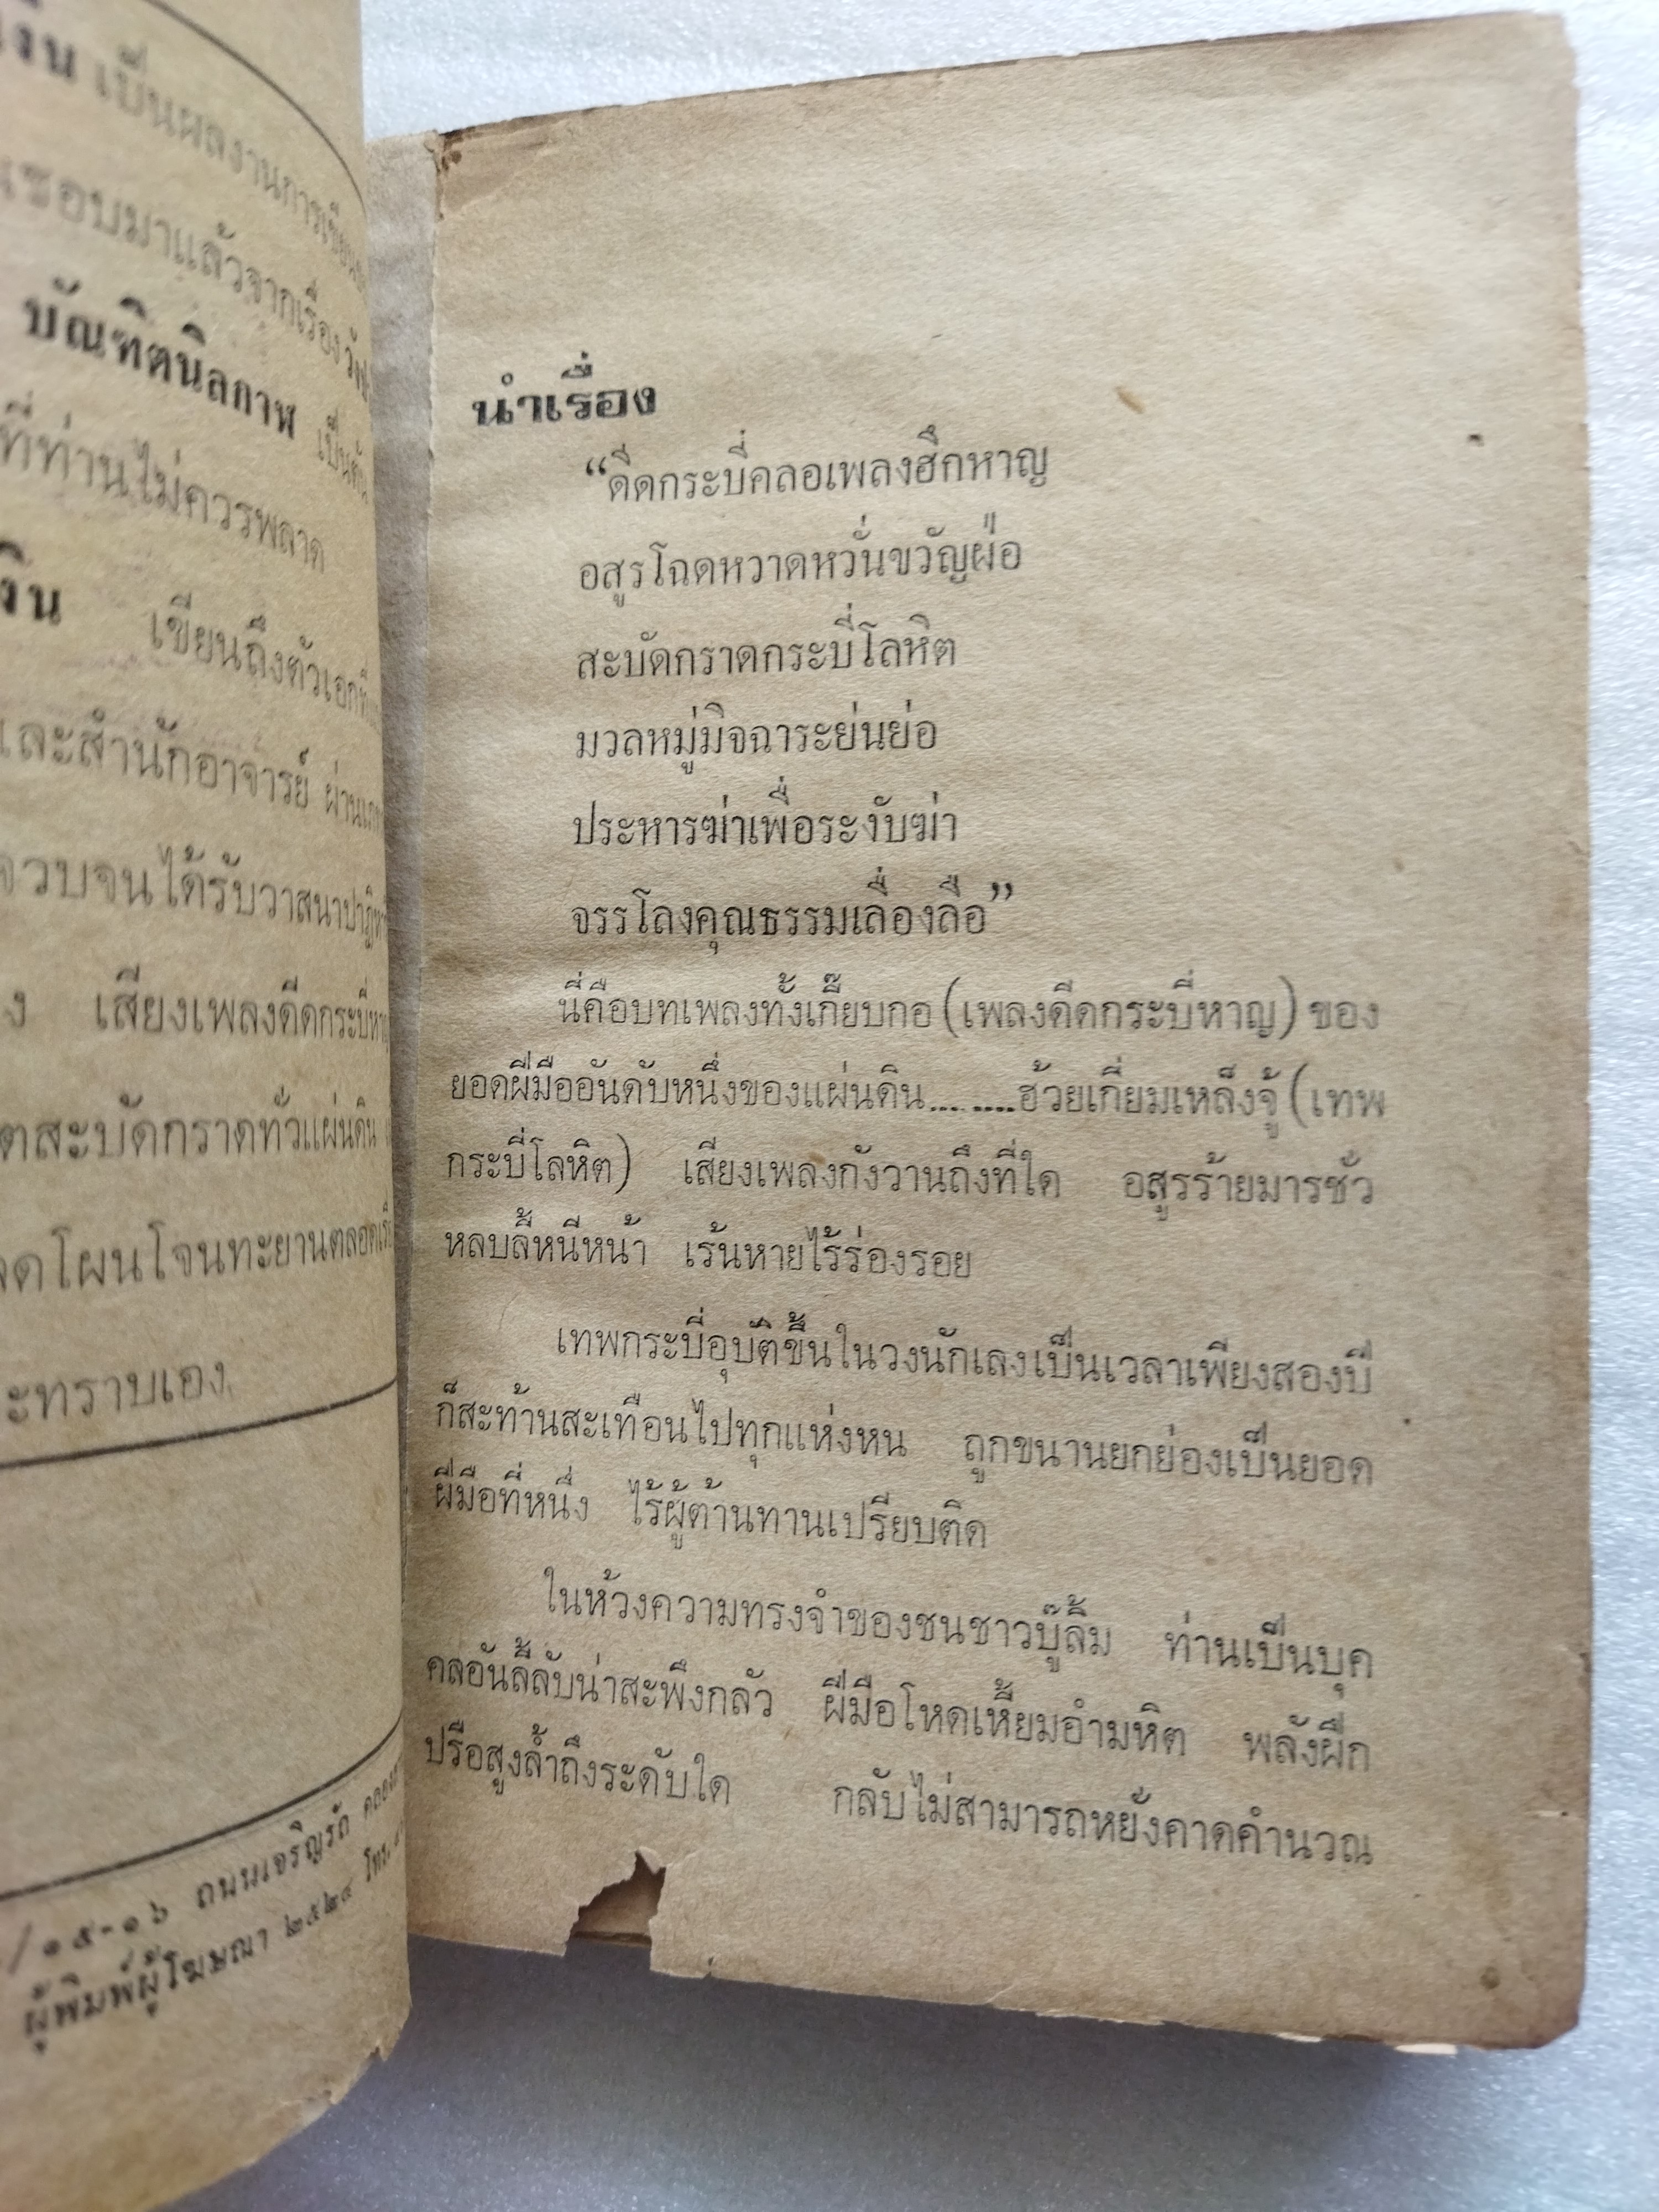 เป็นผลงานการเขียน
ชอบมาแล้วจากเรื่อง
บัณฑิตนิลกาฬ เป็น
ที่ท่านไม่ควรพลาด
เขียนถึงตัวเอก
และสำนักอาจารย์ ผ่าน
จวบจนได้รับวาสนา
เสียงเพลงดีดกระบี่
สะบัดกราดทั่วแผ่นดิน
โผนโจนทะยานตลอด
ทราบเอง
/๑๕-๑๖ ถนนเจริญรัถ
ผู้พิมพ์ผู้โฆษณา ๒๕๒๔ โทร.
นำเรื่อง
“ดีดกระบี่คลอเพลงฮึกหาญ
อสูรโฉดหวาดหวั่นขวัญฝ่อ
สะบัดกราดกระบี่โลหิต
มวลหมู่มิจฉาระย่นย่อ
ประหารฆ่าเพื่อระงับฆ่า
จรรโลงคุณธรรมเลื่องลือ”
นี่คือบทเพลงทั้งเกี๊ยบกอ (เพลงดีดกระบี่หาญ) ของ
ยอดฝีมืออันดับหนึ่งของแผ่นดิน.........ฮ้วยเกี่ยมเหล็งจู้ (เทพ
กระบี่โลหิต) เสียงเพลงกังวานถึงที่ใด อสูรร้ายมารชั่ว
หลบลี้หนีหน้า เร้นหายไร้ร่องรอย
เทพกระบี่อุบัติขึ้นในวงนักเลงเป็นเวลาเพียงสองปี
ก็สะท้านสะเทือนไปทุกแห่งหน ถูกขนานยกย่องเป็นยอด
ฝีมือที่หนึ่ง ไร้ผู้ต้านทานเปรียบติด
ในห้วงความทรงจำของชนชาวบู๊ลิ้ม ท่านเป็นบุค
คลอันลี้ลับน่าสะพึงกลัว ฝีมือโหดเหี้ยมอำมหิต พลังฝึก
ปรือสูงล้ำถึงระดับใด กลับไม่สามารถหยั่งคาดคำนวณ